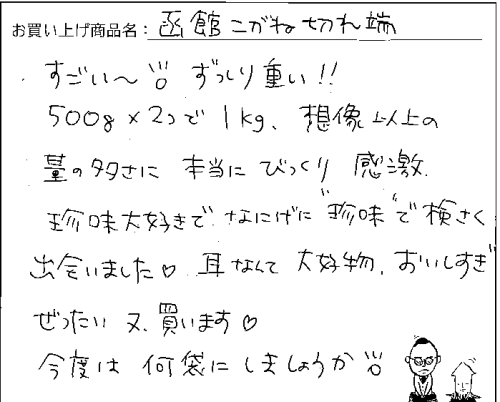 お買い上げ商品名：函館こがね切れ端
すごい〜 ずっしり重い!!
500g×2つで1kg、想像以上の
量の多さに 本当にびっくり 感激.
珍味大好きで なにげに"珍味"で検さく
出会いました♡ 耳なんて 大好物、おいしすぎ
ぜったい 又、買います♡
今度は 何袋に しましょうか